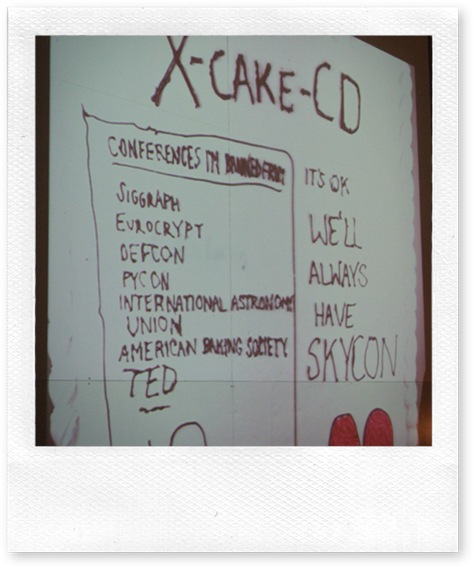 X-CAKE-CD
CONFERENCES I'M BANNED FROM
SIGGRAPH
EUROCRYPT
DEFCON
PYCON
INTERNATIONAL ASTRONOMY
UNION
AMERICAN BAKING SOCIETY
TED
IT'S OK
WE'LL
ALWAYS
HAVE
SKYCON